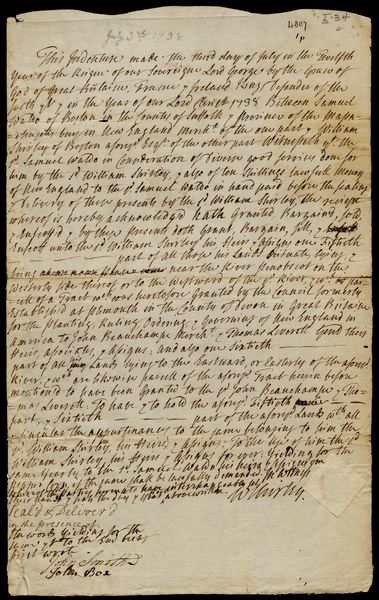 4807
I-34
July 3rd 1738
This Indenture made the third day of July in the Twelfth
Year of the Reigne of our Sovereign Lord George by the Grace of
God of Great Brittain, France, & Ireland King Defender of the
Faith &c & in the Year of our Lord Christ 1738 Between Samuel
Waldo of Boston in the County of Suffolk & province of the Massa-
chusetts bay in New England Mercht of the one part & William
Shirley of Boston aforesd Esqr of the other part Witnesseth that the
sd Samuel Waldo in Consideration of Diverse good services done for
him by the sd William Shirley, & also of ten Shillings lawfull Money
of New England to the sd Samuel Waldo in hand paid before the sealing
& Delivery of these presents by the sd William Shirley, the receipt
whereof is hereby acknowledged hath Granted Bargain'd, sold,
& Enfeoff'd, & by these presents doth grant, Bargain, sell, &
Enfeoff unto the sd William Shirley his Heirs & Assigns one Sixtieth
part of all those his Lands Situate, lying &
being near the River Penobscot on the
Westerly side thereof or to the Westward of the sd River, wch are par-
cel of a Tract wch was heretofore Granted by the Council formerly
Establish'd at Plimouth in the County of Devon in Great Brittain
for the Planting, Ruling, Ordering, & Governing of New England in
America to John Beauchamp Mercht & Thomas Leverett Gent their
Heirs, associates, & Assigns: and also one Sixtieth
part of all his Lands lying to the Eastward, or Easterly of the aforesd
River, wch are likewise parcell of the aforesd Tract herein before
mention'd to have been granted to the sd John Beauchamp & Tho-
mas Leverett To have & to hold the aforesd Sixtieth
part, & Sixtieth part of the aforesd Lands wth all
& singular the appurtenances to the same belonging to him the
sd William Shirley, his Heirs, & Assigns, To the use of him the sd
William Shirley, his Heirs & Assigns for ever: Yielding for the
same Yearly to the sd Samuel Waldo his heirs & assigns one
Pepper Corn if the same shall be lawfully demanded In Witness
whereof the parties hereunto have interchangeably set
their hands & seals the day & Year abovewritten
W Shirley
Seal'd & Deliver'd
in the presence of
the words Yielding for the
same &c to the End being
first wrote
John Smith
John Box